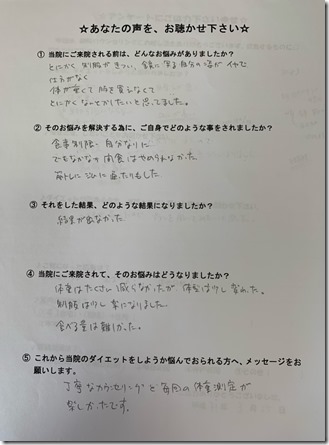 ☆あなたの声を、お聴かせ下さい☆
① 当院にご来院される前は、どんなお悩みがありましたか？
とにかく 制服がきつい、鏡に写る自分の姿がイヤで
仕方がなく
体が重くて 服を買えなくて
とにかくなんとかしたいと思ってました。
② そのお悩みを解決する為に、ご自身でどのような事をされましたか？
食事制限、自分なりに
でもなかなか間食はやめられなかった。
筋トレにジムに通ったりもした
③ それをした結果、どのような結果になりましたか？
結果が出なかった
④ 当院にご来院されて、そのお悩みはどうなりましたか？
体重はたくさん減らなかったが、体型は少し変わった。
制服は少し楽になりました。
食べる量は難しかった。
⑤ これから当院のダイエットをしようか悩んでおられる方へ、メッセージをお
願いします。
丁寧なカウンセリングと毎回の体重測定が
楽しかったです。